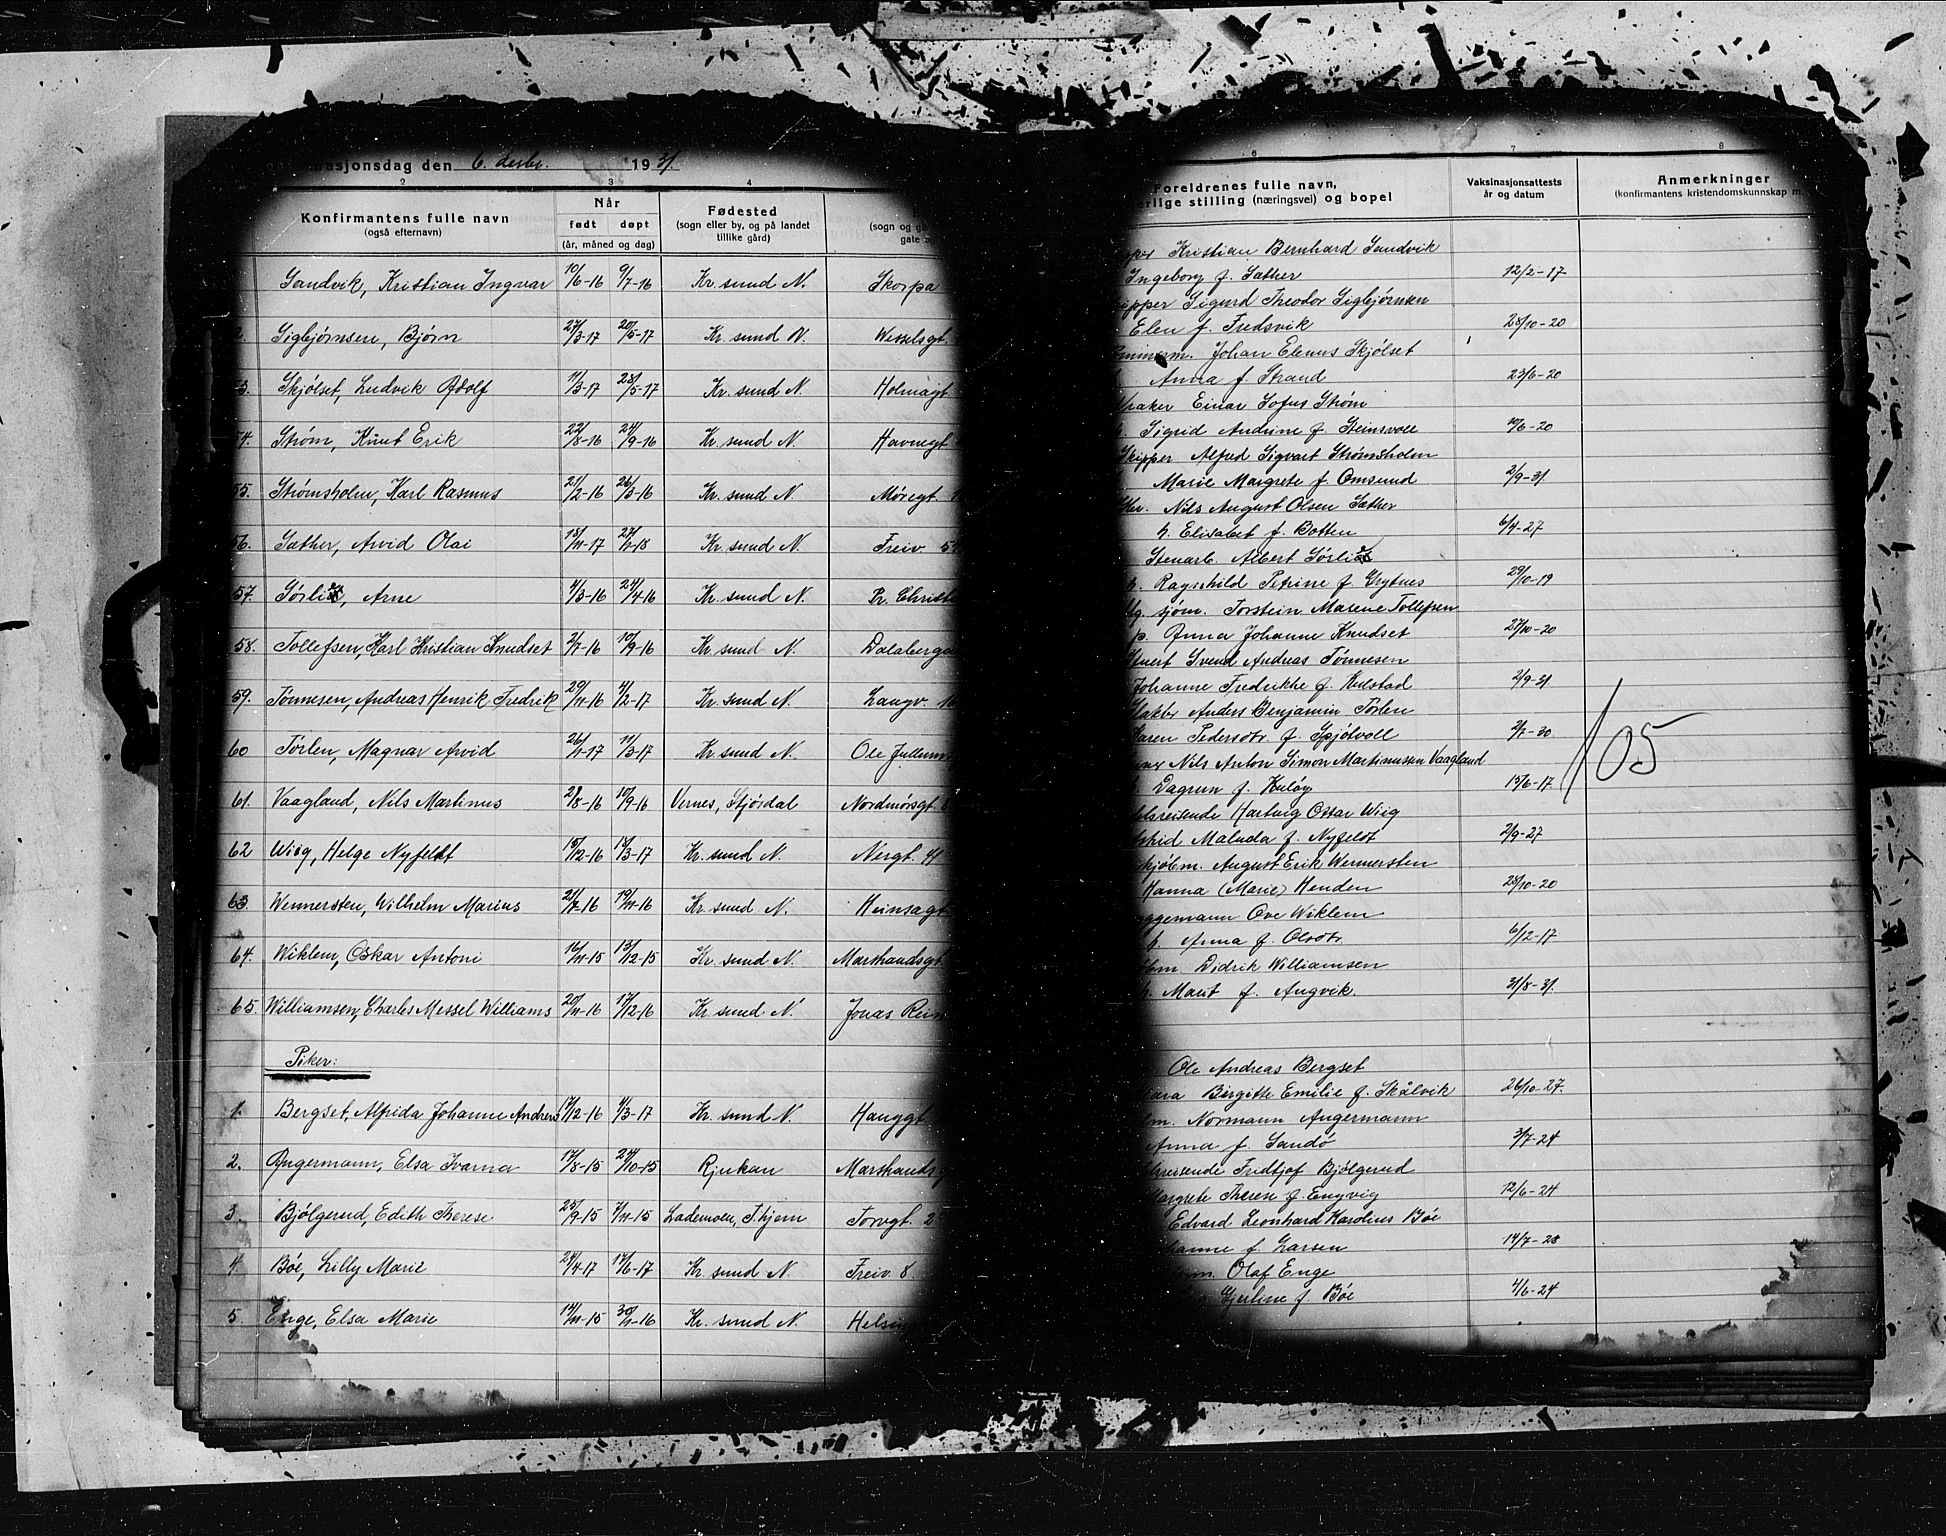 asjonsdag den 6. desbr. 1931.
2 3 4
Konfirmantens fulle navn
(også efternavn)
Når
født døpt
(år, måned og dag)
Fødested
(sogn eller by, og på landet
tillike gård)
(sogn og
gate
Sandvik, Kristian Ingvar 10/6-16 9/7-16 Kr.sund N. Skorpa
2. Sigbjørnsen, Bjørn 27/3-17 20/5-17 Kr.sund N. Wesselsgt.
3. Skjølset, Ludvik Adolf 11/3-17 28/5-17 Kr.sund N. Holmagt.
54. Strøm, Knut Erik 22/8-16 24/9-16 Kr.sund N. Havnegt
55. Strømsholm, Karl Rasmus 21/2-16 26/3-16 Kr.sund N. Møregt.
56. Sæther, Arvid Olai 18/11-17 27/1-18 Kr.sund N. Freiv.
57. Sørli, Arne 4/3-16 24/4-16 Kr.sund N. Pr. Christ
58. Tollefsen, Karl Kristian Knudset 2/7-16 10/9-16 Kr.sund N. Dalaberg
59. Tønnesen, Andreas Henrik Fredrik 29/11-16 4/2-17 Kr.sund N. Langv.
60 Tørlen, Magnar Arvid 26/1-17 11/3-17 Kr.sund N. Ole
61. Vaagland, Nils Martinus 2/8-16 10/9-16 Vernes, Stjørdal Nordmørsgt.
62 Wiig, Helge Nyfeldt 15/12-16 18/3-17 Kr.sund N. Nergt. 41
63. Wennersten, Wilhelm Marius 21/7-16 19/11-16 Kr.sund N. Heinsagt
64. Wiklem, Oskar Antoni 16/11-15 13/12-15 Kr.sund N. Markhandsgt.
65. Williamsen, Charles Messel Williams 20/11-16 17/12-16 Kr.sund N. Jonas Rein
Piker:
1. Bergset, Alfrida Johanne Andrea 17/12-16 4/3-17 Kr.sund N. Hauggt
2. Angermann, Elsa Ivarna 17/8-15 24/10-15 Rjukan
3. Bjølgerud, Edith Therese 25/9-15 7/11-15 Lademoen, T.hjem Torvgt.
4. Bøe, Lilly Marie 24/4-17 17/6-17 Kr.sund N. Freiv. 8.
5. Enge, Elsa Marie 14/11-15 30/1-16 Kr.sund N.
6 7 8
Foreldrenes fulle navn,
erlige stilling (næringsvei) og bopel
Vaksinasjonsattests
år og datum
Anmerkninger
(konfirmantens kristendomskunnskap m.
Kristian Bernhard Sandvik
Ingeborg f. Sæther 12/2-17
ipper Sigurd Theodor Sigbjørnsen
Elen f. Fredsvik 28/10-20
Johan Elenus Skjølset
Anna f. Strand 23/6-20
Einar Sofus Strøm
Sigrid Andrine f. Steinsvoll
Skipper Alfred Sigvart Strømsholm
Marie Margrete f. Omsund 2/9-31
Nils August Olsen Sæther
h. Elisabet f. Botten 6/4-27
Stenarb. Albert Sørli
h. Ragnhild Petrine f. Grytnes 29/10-19
sjøm. Torstein Marene Tollefsen
p. Anna Johanne Knudset 27/10-20
Svend Andreas Tønnesen
Johanne Fredrikke f. Kulstad 2/9-31
Anders Benjamin Tørlen
Karen Pedersdtr. f. Gjølvoll 2/7-30
105
Nils Anton Simon Martinussen Vaagland
Dagrun f. Kuløy 15/6-17
reisende Hartvig Oskar Wiig
Maluda f. Nyfeldt 2/9-27
August Erik Wennersten
Hanna (Marie) Henden 28/10-20
yggemann Ove Wiklem
h. Anna f. Olsdtr. 6/12-17
Didrik Williamsen
Marit f. Angvik. 31/8-31.
Ole Andreas Bergset
Birgitte Emilie f. Skålvik 26/10-27.
Normann Angermann
Anna f. Sandø 3/7-24
reisende Fridtjof Bjølgerud
Margrete Therese f. Engvig 12/6-24
Edvard Leonhard Karolius Bøe
anne f. Larsen 14/7-28
Olaf Enge
Gjerline f. Bøe 4/6-24